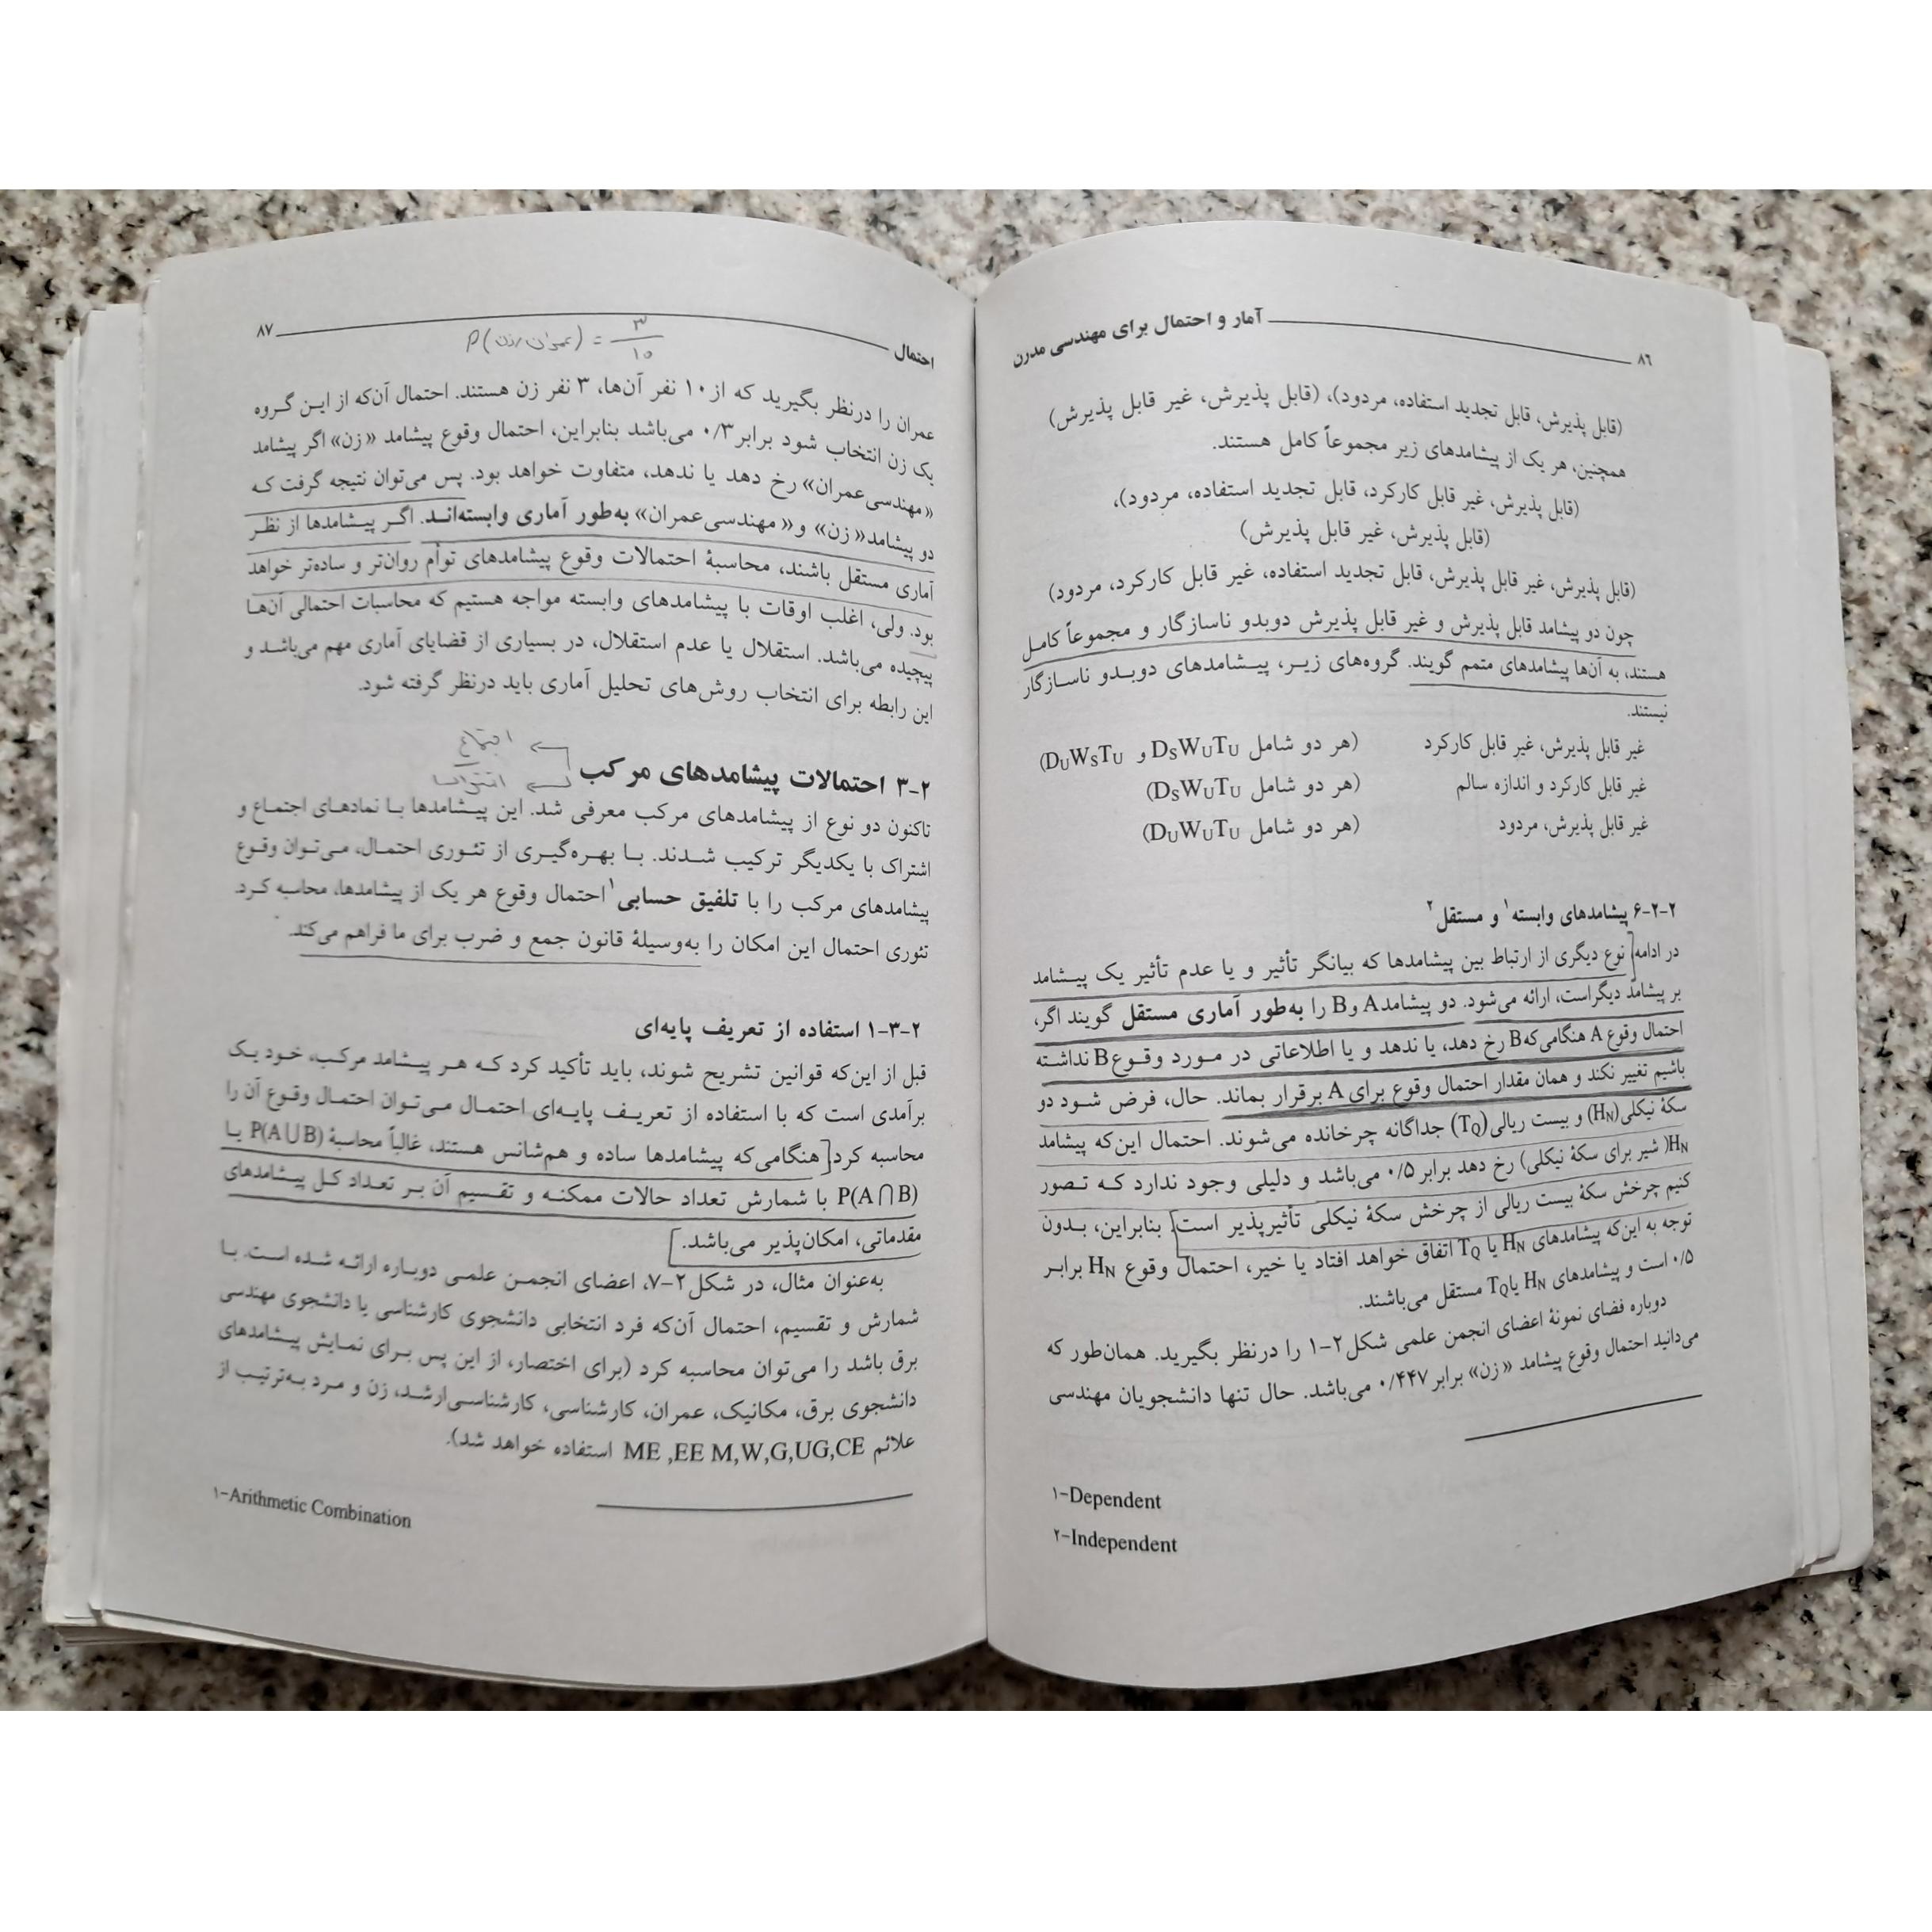 ۸۶ آمار و احتمال برای مهندسی مدرن
(قابل پذیرش، قابل تجدید استفاده، مردود)، (قابل پذیرش، غیر قابل پذیرش)
همچنین، هر یک از پیشامدهای زیر مجموعاً کامل هستند.
(قابل پذیرش، غیر قابل کارکرد، قابل تجدید استفاده، مردود)،
(قابل پذیرش، غیر قابل پذیرش)
(قابل پذیرش، غیر قابل پذیرش، قابل تجدید استفاده، غیر قابل کارکرد، مردود)
چون دو پیشامد قابل پذیرش و غیر قابل پذیرش دوبدو ناسازگار و مجموعاً کامل
هستند، به آن‌ها پیشامدهای متمم گویند. گروه‌های زیر، پیشامدهای دوبدو ناسازگار
نیستند.
غیر قابل پذیرش، غیر قابل کارکرد (هر دو شامل DSWUTU و DUWSTU)
غیر قابل کارکرد و اندازه سالم (هر دو شامل DSWUTU)
غیر قابل پذیرش، مردود (هر دو شامل DUWUTU)
۲-۲-۶ پیشامدهای وابسته۱ و مستقل۲
در ادامه نوع دیگری از ارتباط بین پیشامدها که بیانگر تأثیر و یا عدم تأثیر یک پیشامد
بر پیشامد دیگراست، ارائه می‌شود. دو پیشامد A و B را به‌طور آماری مستقل گویند اگر،
احتمال وقوع A هنگامی‌که B رخ دهد، یا ندهد و یا اطلاعاتی در مورد وقوع B نداشته
باشیم تغییر نکند و همان مقدار احتمال وقوع برای A برقرار بماند. حال، فرض شود دو
سکهٔ نیکلی (HN) و بیست ریالی (TQ) جداگانه چرخانده می‌شوند. احتمال این‌که پیشامد
HN (شیر برای سکهٔ نیکلی) رخ دهد برابر ۰/۵ می‌باشد و دلیلی وجود ندارد که تصور
کنیم چرخش سکهٔ بیست ریالی از چرخش سکهٔ نیکلی تأثیرپذیر است. بنابراین، بدون
توجه به این‌که پیشامدهای HN یا TQ اتفاق خواهد افتاد یا خیر، احتمال وقوع HN برابر
۰/۵ است و پیشامدهای HN یا TQ مستقل می‌باشند.
دوباره فضای نمونهٔ اعضای انجمن علمی شکل ۲-۱ را درنظر بگیرید. همان‌طور که
می‌دانید احتمال وقوع پیشامد «زن» برابر ۰/۴۴۷ می‌باشد. حال تنها دانشجویان مهندسی
۱-Dependent
۲-Independent
احتمال ۸۷
P(عمران، زن) = ۳/۱۰
عمران را درنظر بگیرید که از ۱۰ نفر آن‌ها، ۳ نفر زن هستند. احتمال آن‌که از این گروه
یک زن انتخاب شود برابر ۰/۳ می‌باشد بنابراین، احتمال وقوع پیشامد «زن» اگر پیشامد
«مهندسی‌عمران» رخ دهد یا ندهد، متفاوت خواهد بود. پس می‌توان نتیجه گرفت که
دو پیشامد «زن» و «مهندسی‌عمران» به‌طور آماری وابسته‌اند. اگر پیشامدها از نظر
آماری مستقل باشند، محاسبهٔ احتمالات وقوع پیشامدهای توأم روان‌تر و ساده‌تر خواهد
بود. ولی، اغلب اوقات با پیشامدهای وابسته مواجه هستیم که محاسبات احتمالی آن‌ها
پیچیده می‌باشد. استقلال یا عدم استقلال، در بسیاری از قضایای آماری مهم می‌باشد و
این رابطه برای انتخاب روش‌های تحلیل آماری باید درنظر گرفته شود.
اجتماع
۲-۳ احتمالات پیشامدهای مرکب
تاکنون دو نوع از پیشامدهای مرکب معرفی شد. این پیشامدها با نمادهای اجتماع و
اشتراک با یکدیگر ترکیب شدند. با بهره‌گیری از تئوری احتمال، می‌توان وقوع
پیشامدهای مرکب را با تلفیق حسابی۱ احتمال وقوع هر یک از پیشامدها، محاسبه کرد.
تئوری احتمال این امکان را به‌وسیلهٔ قانون جمع و ضرب برای ما فراهم می‌کند.
۲-۳-۱ استفاده از تعریف پایه‌ای
قبل از این‌که قوانین تشریح شوند، باید تأکید کرد که هر پیشامد مرکب، خود یک
برآمدی است که با استفاده از تعریف پایه‌ای احتمال می‌توان احتمال وقوع آن را
محاسبه کرد. هنگامی‌که پیشامدها ساده و هم‌شانس هستند، غالباً محاسبهٔ P(A∪B) یا
P(A∩B) با شمارش تعداد حالات ممکنه و تقسیم آن بر تعداد کل پیشامدهای
مقدماتی، امکان‌پذیر می‌باشد.
به‌عنوان مثال، در شکل ۲-۷، اعضای انجمن علمی دوباره ارائه شده است. با
شمارش و تقسیم، احتمال آن‌که فرد انتخابی دانشجوی کارشناسی یا دانشجوی مهندسی
برق باشد را می‌توان محاسبه کرد (برای اختصار، از این پس برای نمایش پیشامدهای
دانشجوی برق، مکانیک، عمران، کارشناسی، کارشناسی‌ارشد، زن و مرد به‌ترتیب از
علائم ME ,EE M,W,G,UG,CE استفاده خواهد شد).
۱-Arithmetic Combination